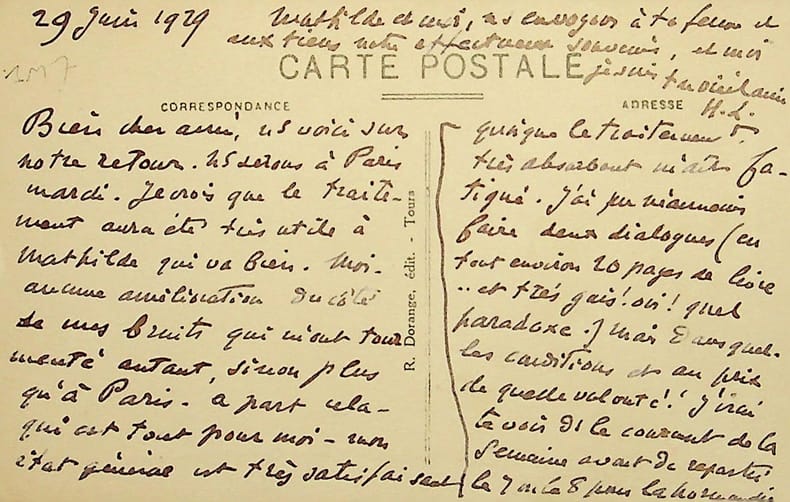 29 Juin 1929
Mathilde et moi, ns envoyons à ta femme et
aux tiens notre affectueux souvenir, et moi
je suis ton vieil ami
H. L.
CARTE POSTALE
CORRESPONDANCE
ADRESSE
Bien cher ami, ns voici sur
notre retour. ns serons à Paris
mardi. Je crois que le traite-
ment aura été très utile à
Mathilde qui va bien. Moi-
aucune amélioration du côté
de mes bruits qui m'ont tour
menté autant, sinon plus
qu'à Paris - à part cela -
qui est tout pour moi - mon
état général est très satisfaisant
R. Dorange, édit. - Tours
quoique le traitement
très absorbant m'ait fa-
tigué. J'ai pu néanmoins
faire deux dialogues (en
tout environ 20 pages de livre
.. et très gais! oui! quel
paradoxe.) mais dans quel-
les conditions et au prix
de quelle volonté! J'irai
te voir ds le courant de la
semaine avant de repartir
le 7 ou le 8 pour la normandie